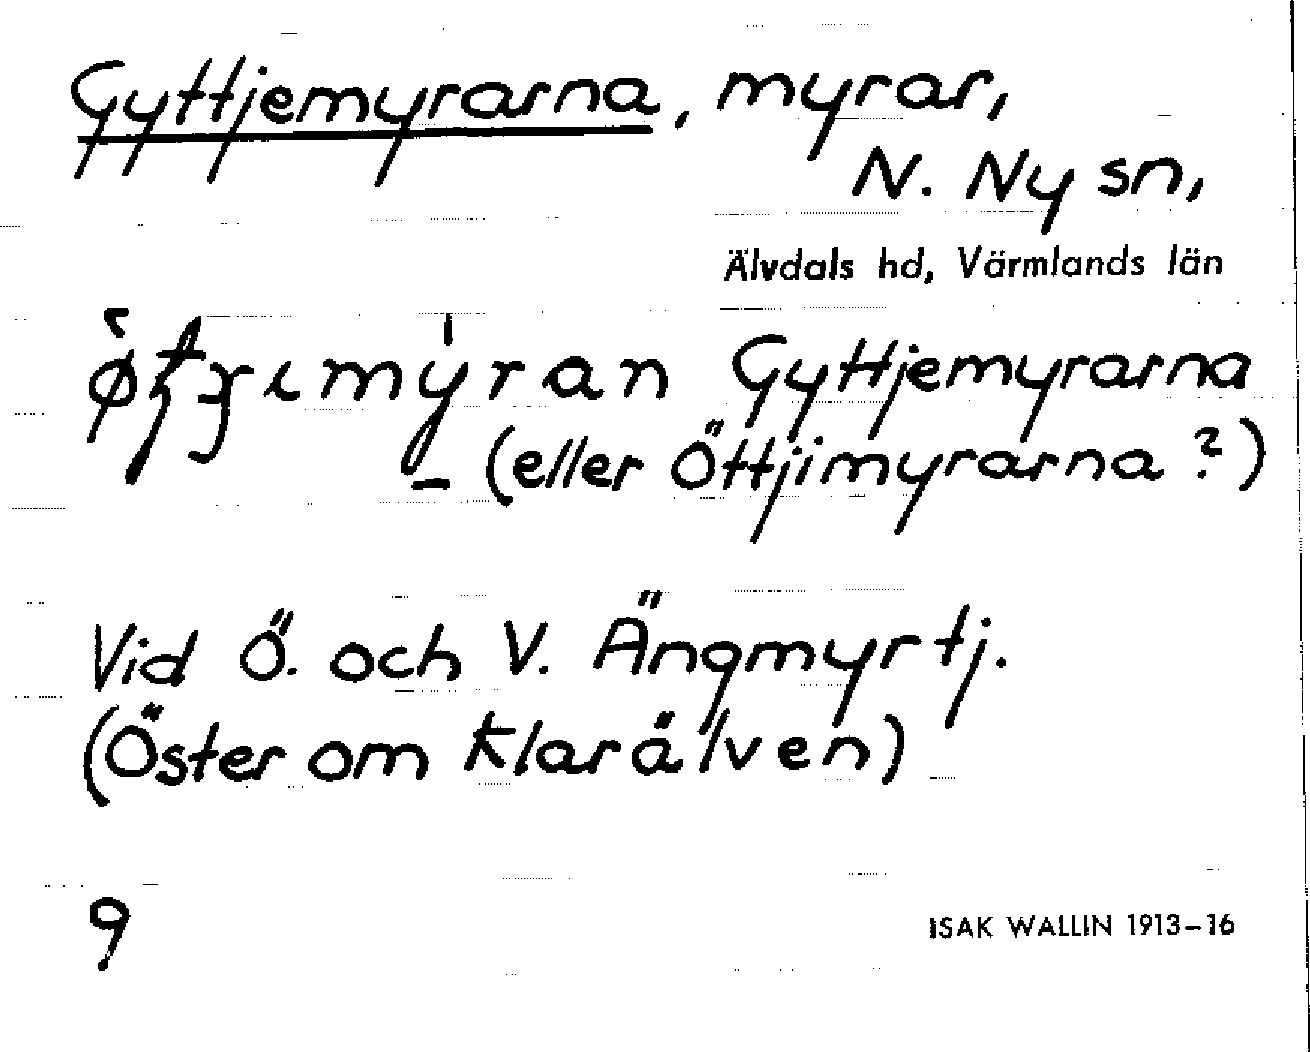 Gyttjemyrarna, myrar,
N. Ny sn,
Älvdals hd, Värmlands län
Gyttjemyrarna
(eller Öttjimyrarna?)
Vid Ö. och V. Ängmyrtj.
(Öster om Klarälven)
9
ISAK WALLIN 1913-16